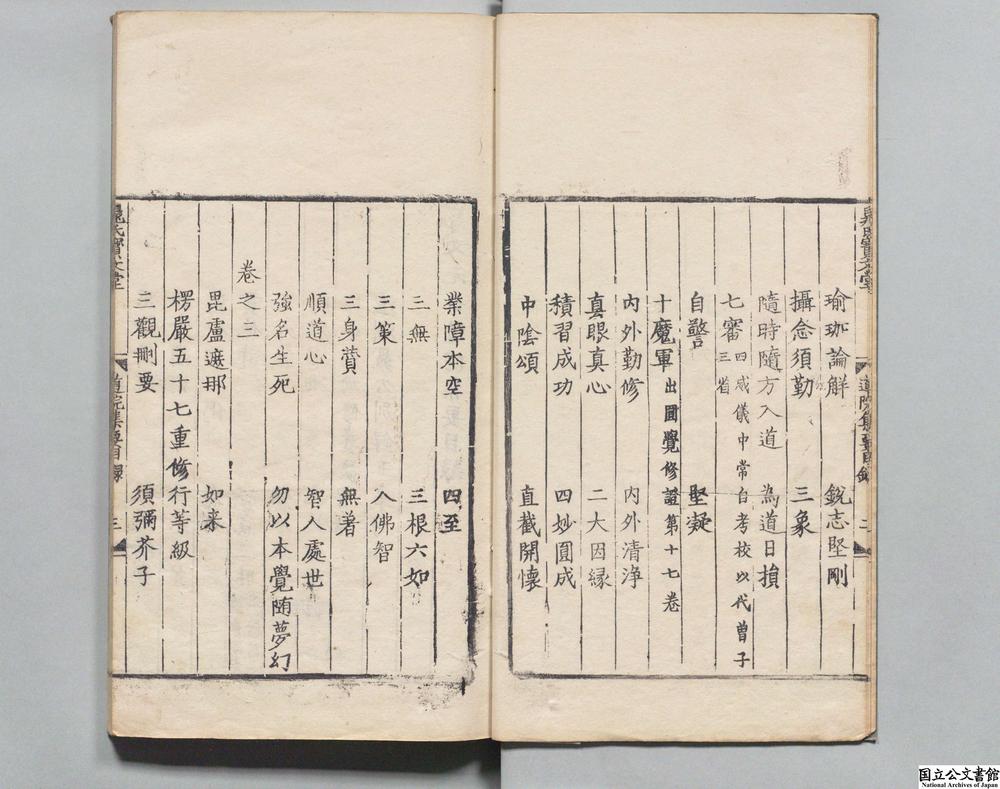 瑜珈論解 銳志堅剛
攝念須勤 三象
隨時隨方入道 為道日損
七審 四威儀中常自考校以代曾子三省
自警 堅疑
十魔軍 出圓覺修證第十七卷
内外勤修 内外清淨
真眼真心 二大因縁
積習成功 四妙圓成
中陰頌 直截開懷
道院集要目錄 二
業障本空 四至
三無 三根六如
三策 入佛智
三身贊 無著
順道心 智人處世
強名生死 勿以本覺随夢幻
卷之三
毘盧遮那 如来
楞嚴五十七重修行等級
三觀刪要 須彌芥子
晁氏寶文堂 道院集要目録 三
国立公文書館
National Archives of Japan